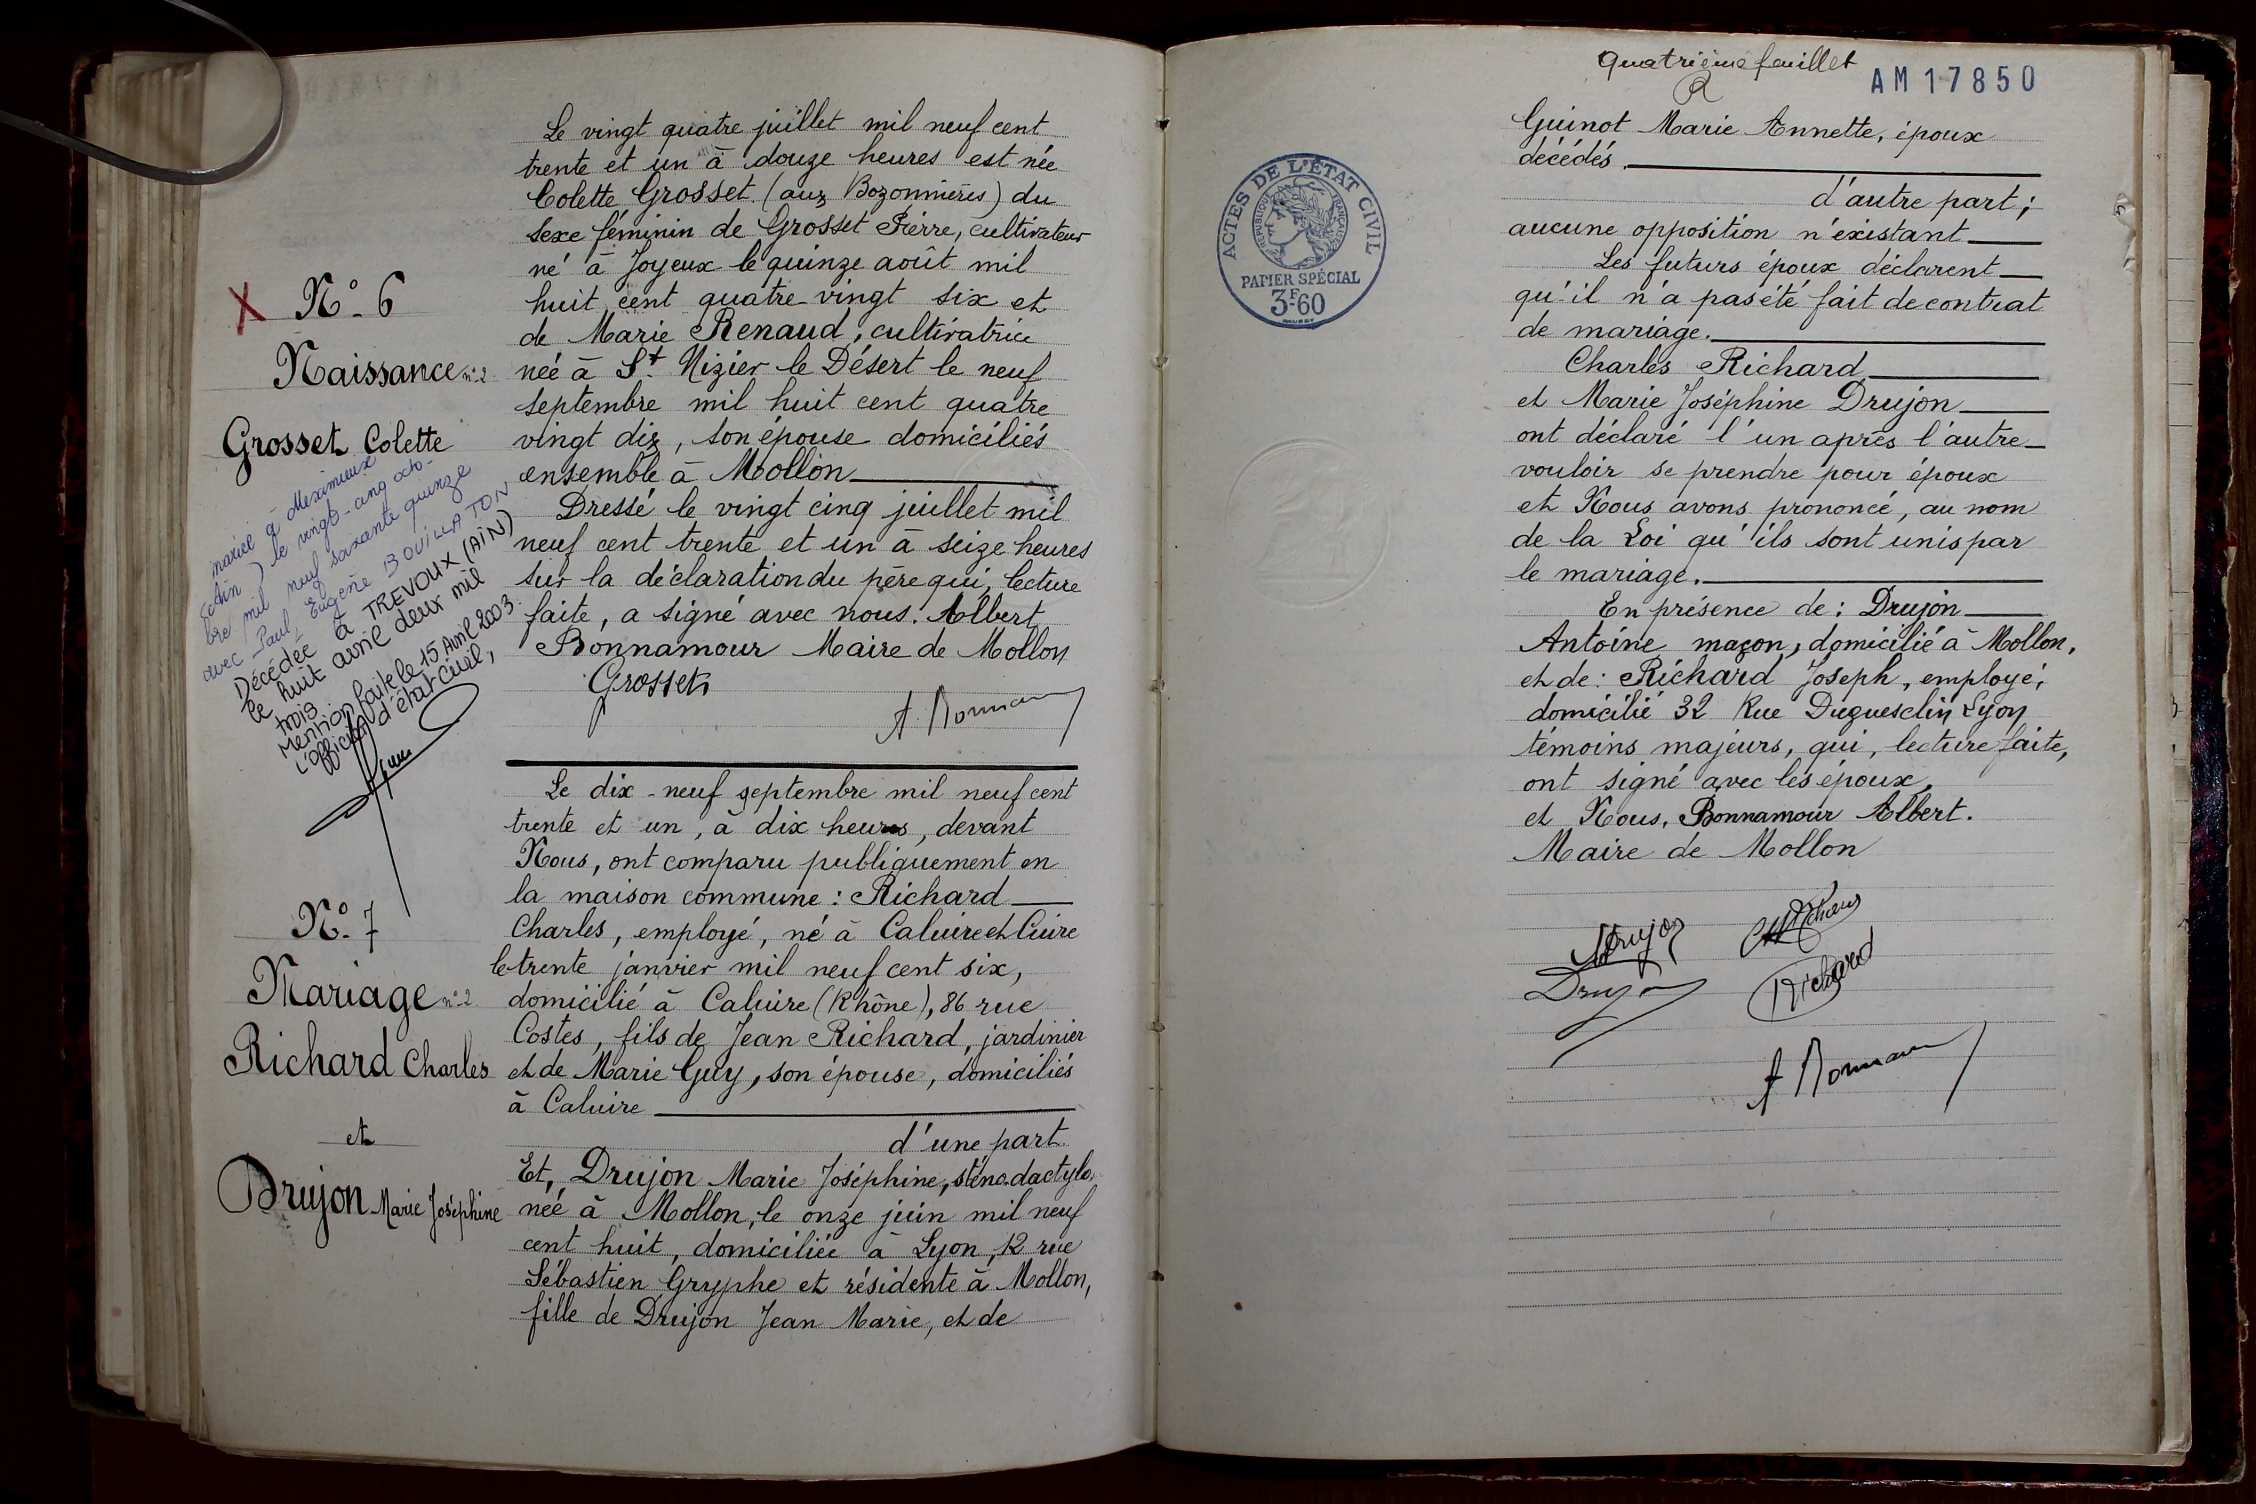 N° 6
Naissance n° 2
Grosset Colette
mariée à Meximieux
(Ain) le vingt-cinq octo-
bre mil neuf soixante quinze
avec Paul, Eugène BOUILLATON
Décédée à TREVOUX (AIN)
le huit avril deux mil
trois.
Mention faite le 15 Avril 2003.
L'officier d'état civil,
Le vingt quatre juillet mil neuf cent
trente et un à douze heures est née
Colette Grosset (aux Bozonnières) du
sexe féminin de Grosset Pierre, cultivateur
né à Joyeux le quinze août mil
huit cent quatre vingt six et
de Marie Renaud, cultivatrice
née à St. Nizier le Désert le neuf
septembre mil huit cent quatre
vingt dix, son épouse domiciliés
ensemble à Mollon
Dressé le vingt cinq juillet mil
neuf cent trente et un à seize heures
sur la déclaration du père qui, lecture
faite, a signé avec nous. Albert
Bonnamour Maire de Mollon
Grosset
A. Bonnamour
N° 7
Mariage n° 2
Richard Charles
et
Drujon Marie Joséphine
Le dix-neuf septembre mil neuf cent
trente et un, à dix heures, devant
Nous, ont comparu publiquement en
la maison commune : Richard
Charles, employé, né à Caluire et Cuire
le trente janvier mil neuf cent six,
domicilié à Caluire (Rhône), 86 rue
Costes, fils de Jean Richard, jardinier
et de Marie Guy, son épouse, domiciliés
à Caluire
d'une part
Et, Drujon Marie Joséphine, sténo-dactylo,
née à Mollon, le onze juin mil neuf
cent huit, domiciliée à Lyon, 12 rue
Sébastien Gryphe et résidente à Mollon,
fille de Drujon Jean Marie, et de
quatrième feuillet
AM 17850
ACTES DE L'ÉTAT CIVIL
RÉPUBLIQUE FRANÇAISE
PAPIER SPÉCIAL
3F.60
Guinot Marie Annette, époux
décédés
d'autre part ;
aucune opposition n'éxistant
Les futurs époux déclarent
qu'il n'a pas été fait de contrat
de mariage.
Charles Richard
et Marie Joséphine Drujon
ont déclaré l'un après l'autre
vouloir se prendre pour époux
et Nous avons prononcé, au nom
de la Loi qu'ils sont unis par
le mariage.
En présence de : Drujon
Antoine maçon, domicilié à Mollon,
et de : Richard Joseph, employé,
domicilié 32 Rue Duguesclin Lyon
témoins majeurs, qui, lecture faite,
ont signé avec les époux,
et Nous, Bonnamour Albert.
Maire de Mollon
Drujon
Drujon
Richard
A Bonnamour